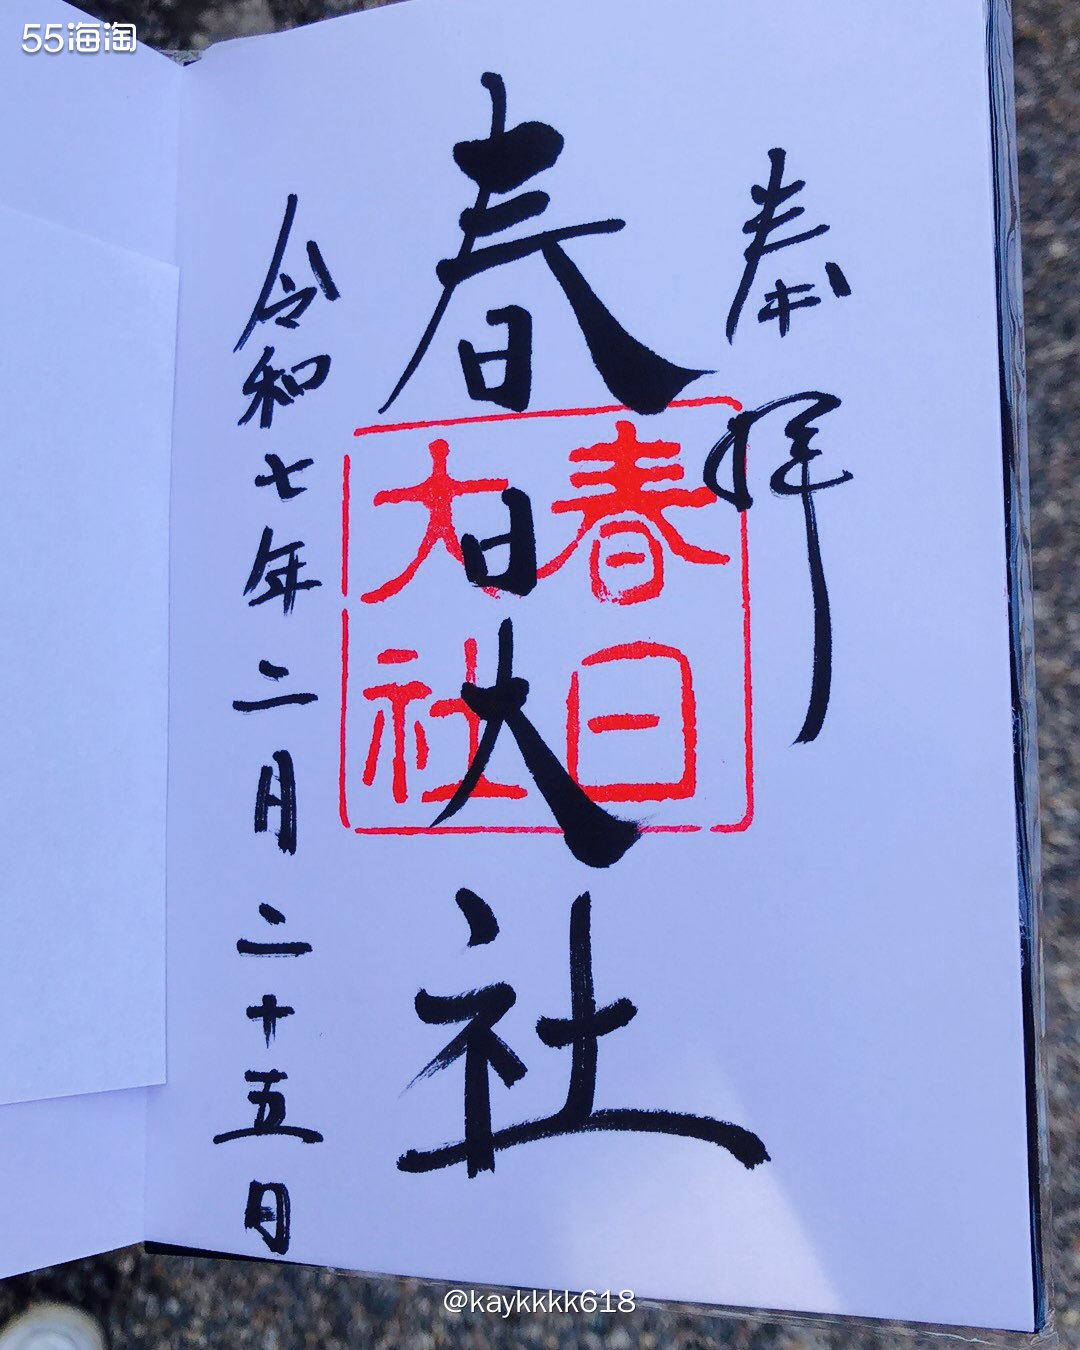 55海淘
奉拝
春日大社
春日
大社
令和七年二月二十五日
@kaykkkk618